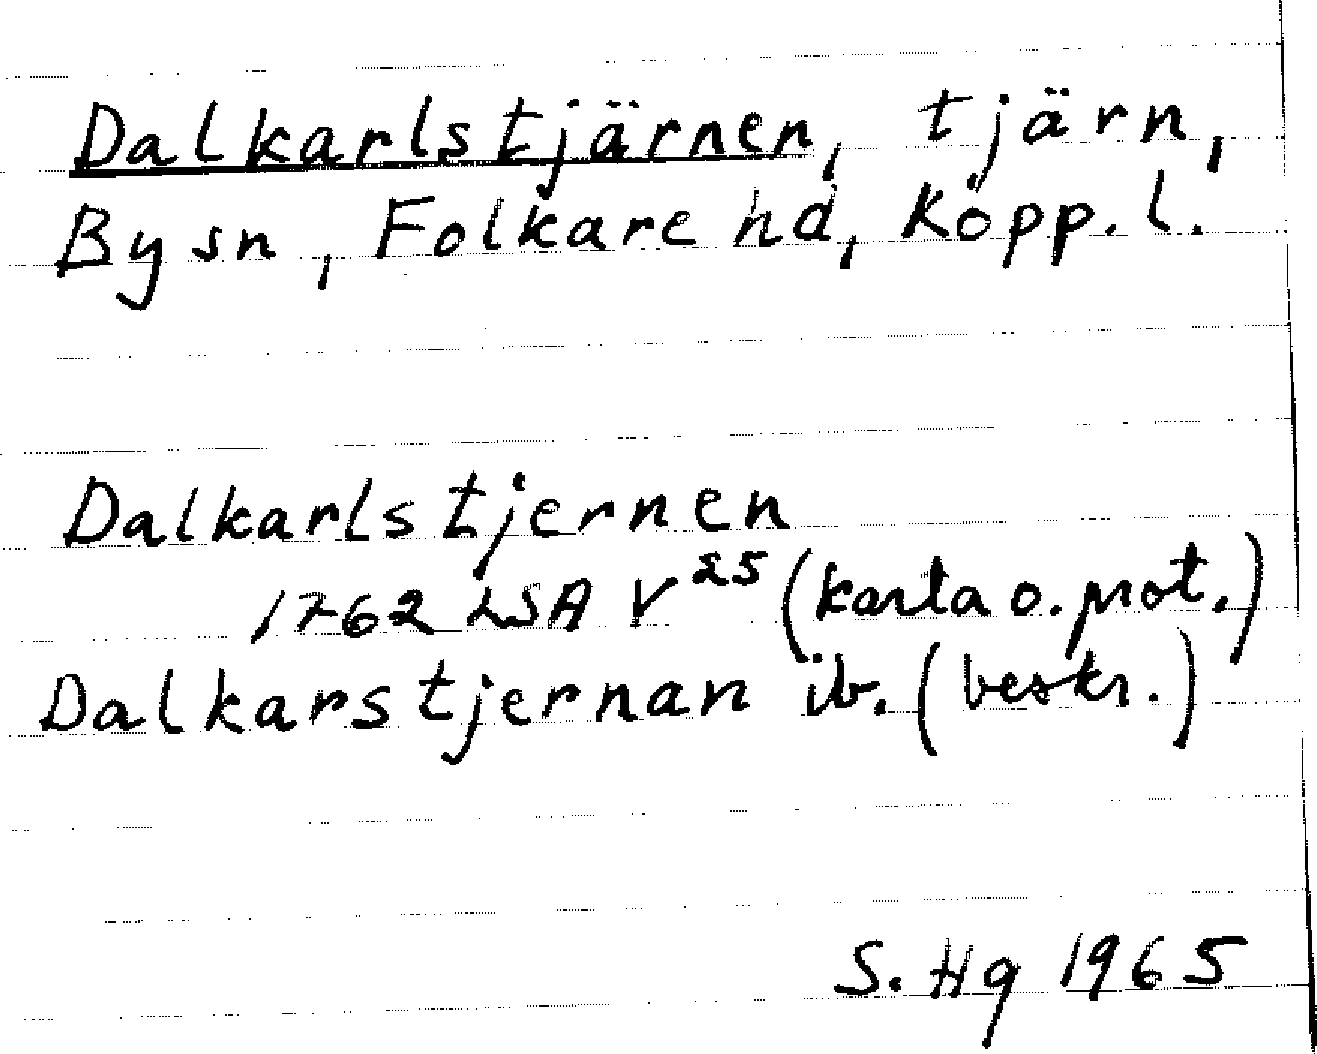 Dalkarlstjärnen, tjärn,
By sn, Folkare hd, Kopp. l.
Dalkarlstjernen
1762 LSA V²⁵ (karta o. prot.)
Dalkarstjernan ib. (beskr.)
S. Hg 1965